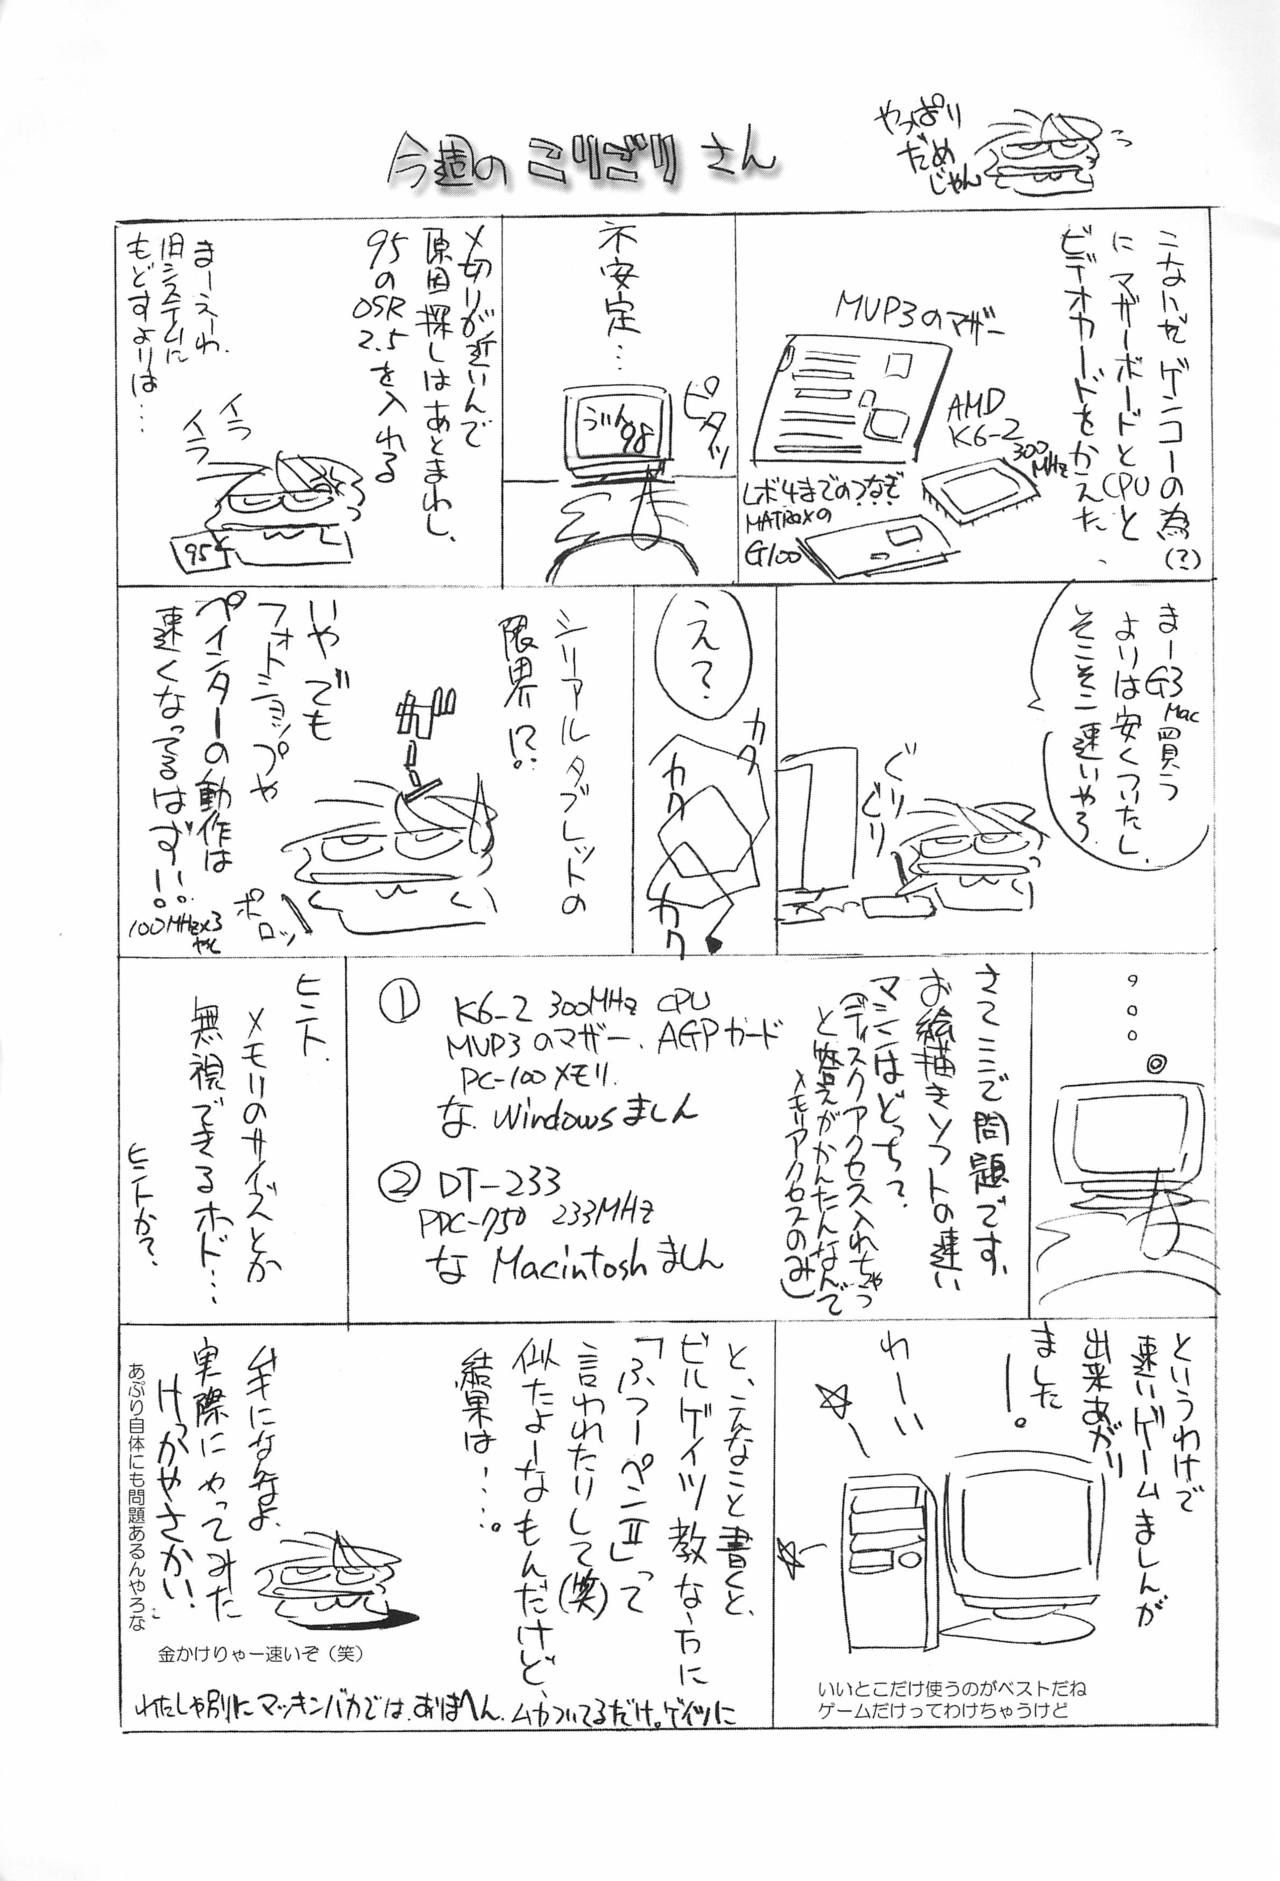 今週のこりごりさん
やっぱり
だめ
じゃん
こないだゲンコーの為(?)
にマザーボードとCPUと
ビデオカードをかえた.
MUP3のマザー
AMD
K6-2
300
MHz
レボ4までのつなぎ
MATROXの
G100
不安定…
ピタッ
うぃん
98
〆切りが近いんで
原因探しはあとまわし、
95の
OSR
2.5を入れる
まーえーわ、
旧システムに
もどすよりは…
イラ
イラ
95
まーG3Mac買う
よりは安くついたし、
そこそこ速いやろ.
ぐりぐり
え?
カク
カク
カク
シリアルタブレットの
限界!?
いやでも
フォトショップや
ペインターの動作は
速くなってるはず…!
100MHz×3
やし
ポロッ
さてここで問題です、
お絵描きソフトの速い
マシンはどっち?
(ディスクアクセス入れちゃう
と答えがかんたんなんで
メモリアクセスのみ)
① K6-2 300MHz CPU
MUP3のマザー、AGPカード
PC-100メモリ.
な Windowsましん
② DT-233
PPC-750 233MHz
な Macintoshましん
ヒント.
メモリのサイズとか
無視できるホド…
ヒントか?
というわけで
速いゲームましんが
出来あがり
ました
ー!。
わーい
いいとこだけ使うのがベストだね
ゲームだけってわけちゃうけど
と、こんなこと書くと、
ビルゲイツ教な方に
「ふつーペンⅡ」って
言われたりして(笑)
似たよーなもんだけど、
結果は…。
ムキになんなよ、
実際にやってみた
けっかやさかい!
あぷり自体にも問題あるんやろな
金かけりゃー速いぞ(笑)
わたしゃ別にマッキンバカでは、おまへん.ムカついてるだけ。ゲイツに